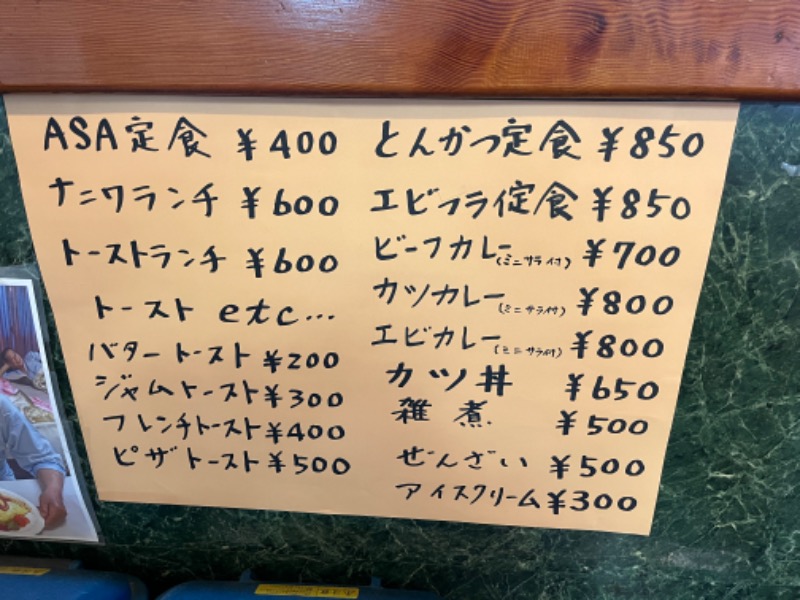 ASA定食 ¥400
ナニワランチ ¥600
トーストランチ ¥600
トースト etc...
バタートースト ¥200
ジャムトースト ¥300
フレンチトースト ¥400
ピザトースト ¥500
とんかつ定食 ¥850
エビフライ定食 ¥850
ビーフカレー(ミニサラダ付) ¥700
カツカレー(ミニサラダ付) ¥800
エビカレー(ミニサラダ付) ¥800
カツ丼 ¥650
雑煮 ¥500
ぜんざい ¥500
アイスクリーム ¥300